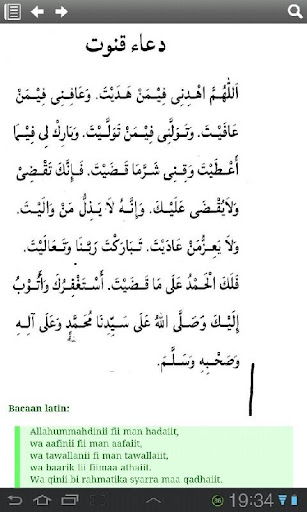 دعاء قنوت
اَللّٰهُمَّ اهْدِنِى فِيْمَنْ هَدَيْتَ. وَعَافِنِى فِيْمَنْ
عَافَيْتَ. وَتَوَلَّنِى فِيْمَنْ تَوَلَّيْتَ. وَبَارِكْ لِى فِيْمَا
أَعْطَيْتَ وَقِنِى شَرَّمَا قَضَيْتَ. فَإِنَّكَ تَقْضِىْ
وَلَايُقْضَى عَلَيْكَ. وَإِنَّهُ لَا يَذِلُّ مَنْ وَالَيْتَ.
وَلَا يَعِزُّمَنْ عَادَيْتَ. تَبَارَكْتَ رَبَّنَا وَتَعَالَيْتَ.
فَلَكَ الْحَمْدُ عَلَى مَا قَضَيْتَ. أَسْتَغْفِرُكَ وَأَتُوْبُ
إِلَيْكَ وَصَلَّى اللهُ عَلَى سَيِّدِنَا مُحَمَّدٍ وَعَلَى آلِهِ
وَصَحْبِهِ وَسَلَّمَ.
Bacaan latin:
Allahummahdinii fii man hadaiit,
wa aafinii fii man aafaiit,
wa tawallanii fii man tawallaiit,
wa baarik lii fiimaa athaiit.
Wa qinii bi rahmatika syarra maa qadhaiit.
36
19:34